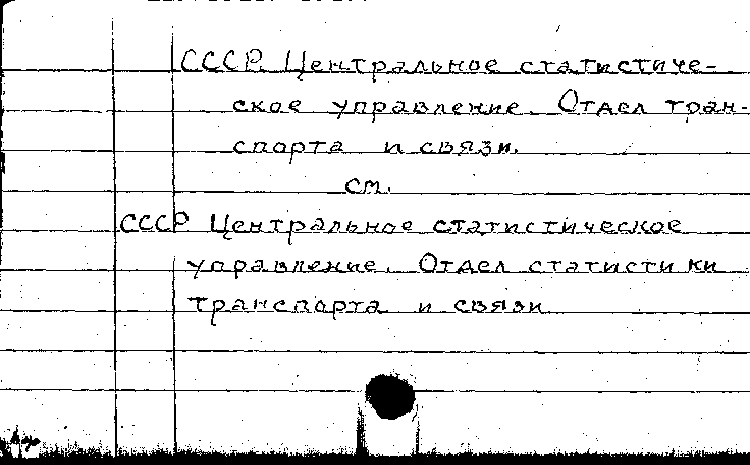 СССР. Центральное статистиче-
ское управление. Отдел тран-
спорта и связи.
см.
СССР Центральное статистическое
управление. Отдел статистики
транспорта и связи